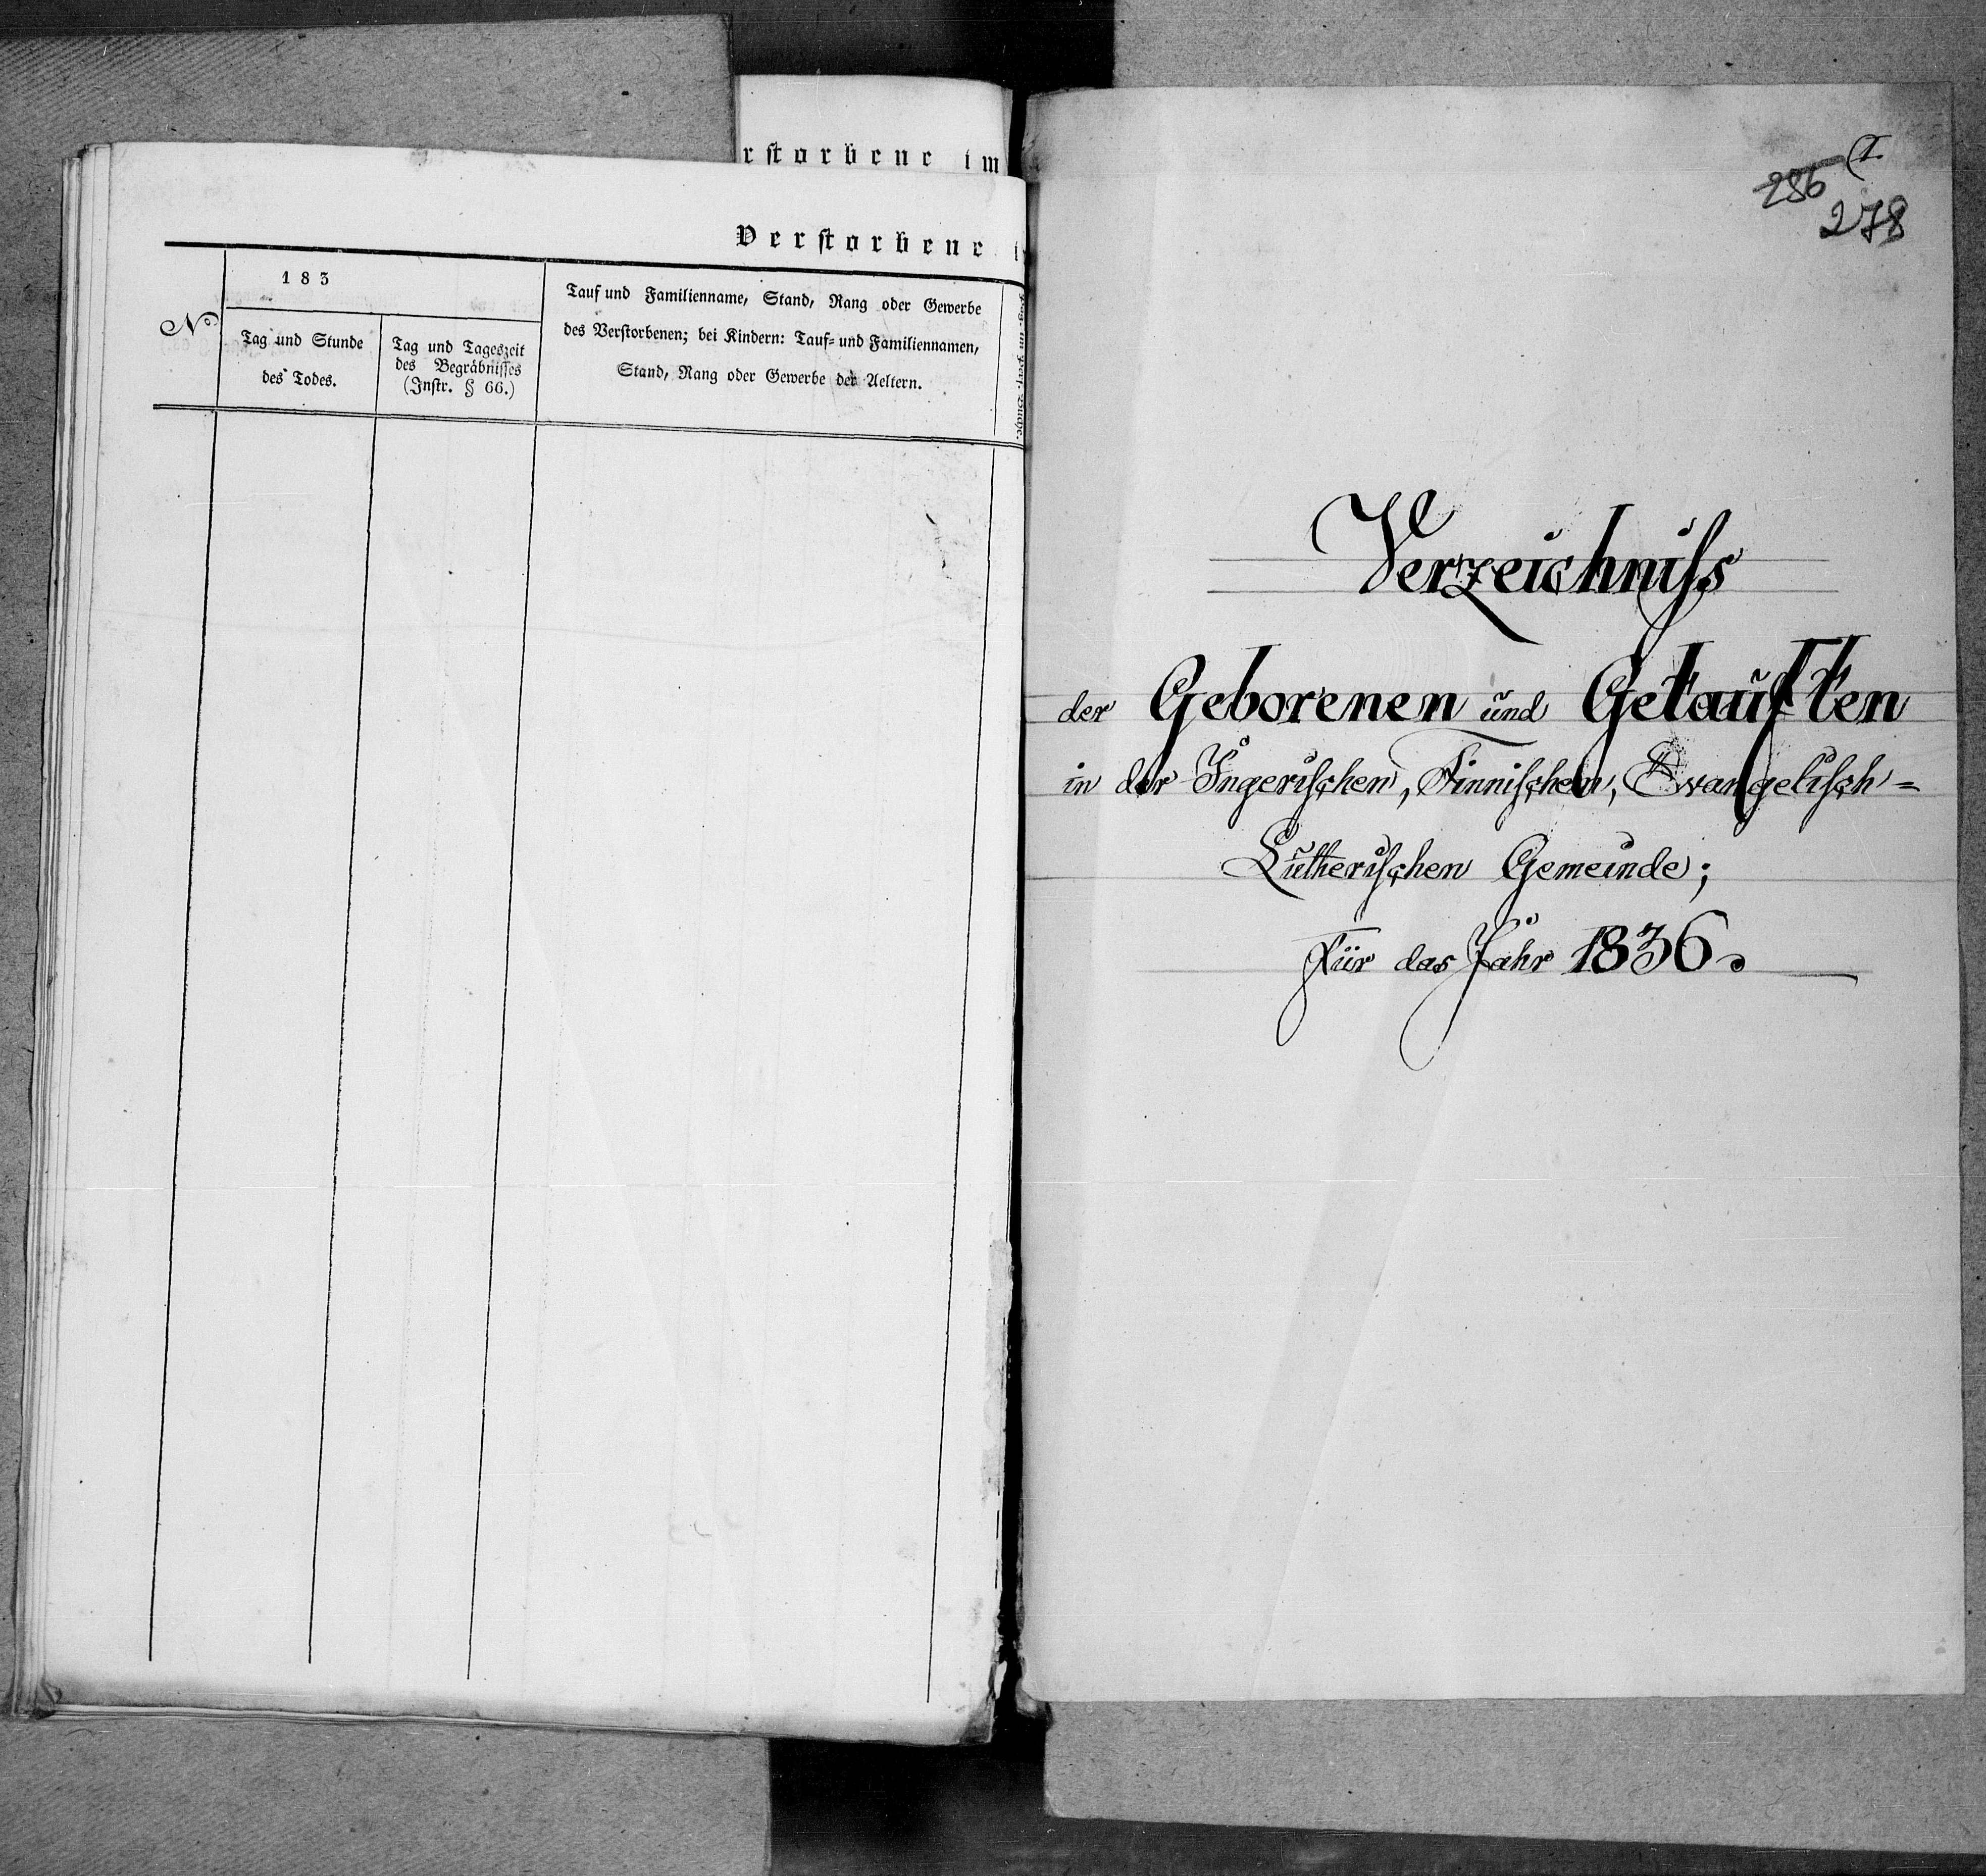 rstorbene im
Verstorbene
183
No
Tag und Stunde
des Todes.
Tag und Tageszeit
des Begräbnisses
(Instr. § 66.)
Tauf und Familienname, Stand, Rang oder Gewerbe
des Verstorbenen; bei Kindern: Tauf= und Familiennamen,
Stand, Rang oder Gewerbe der Aeltern.
286
278
Verzeichniſs
der Geborenen und Getauften
in der Ingerischen, Finnischen, Evangelisch=
Lutherischen Gemeinde;
Für das Jahr 1836.